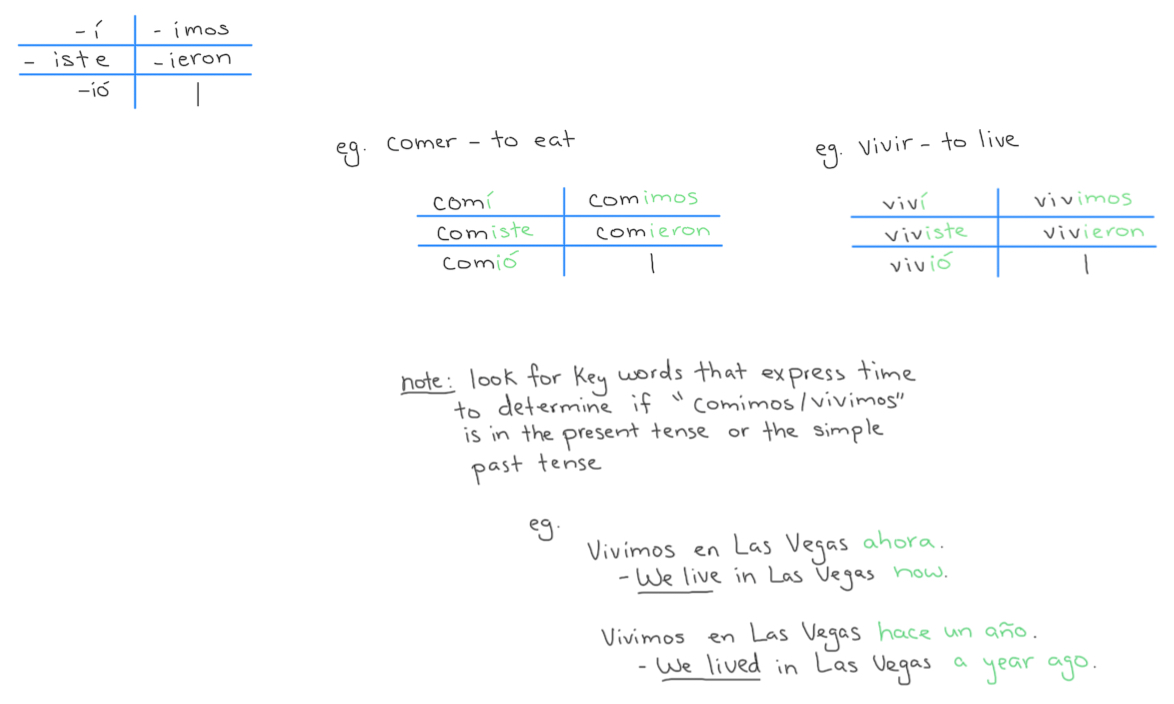 -í - imos
- iste -ieron
-ió |
eg. comer - to eat
eg. vivir - to live
comí comimos
comiste comieron
comió |
viví vivimos
viviste vivieron
vivió |
note: look for key words that express time
to determine if "comimos/vivimos"
is in the present tense or the simple
past tense
eg.
Vivimos en Las Vegas ahora.
- We live in Las Vegas now.
Vivimos en Las Vegas hace un año.
- We lived in Las Vegas a year ago.